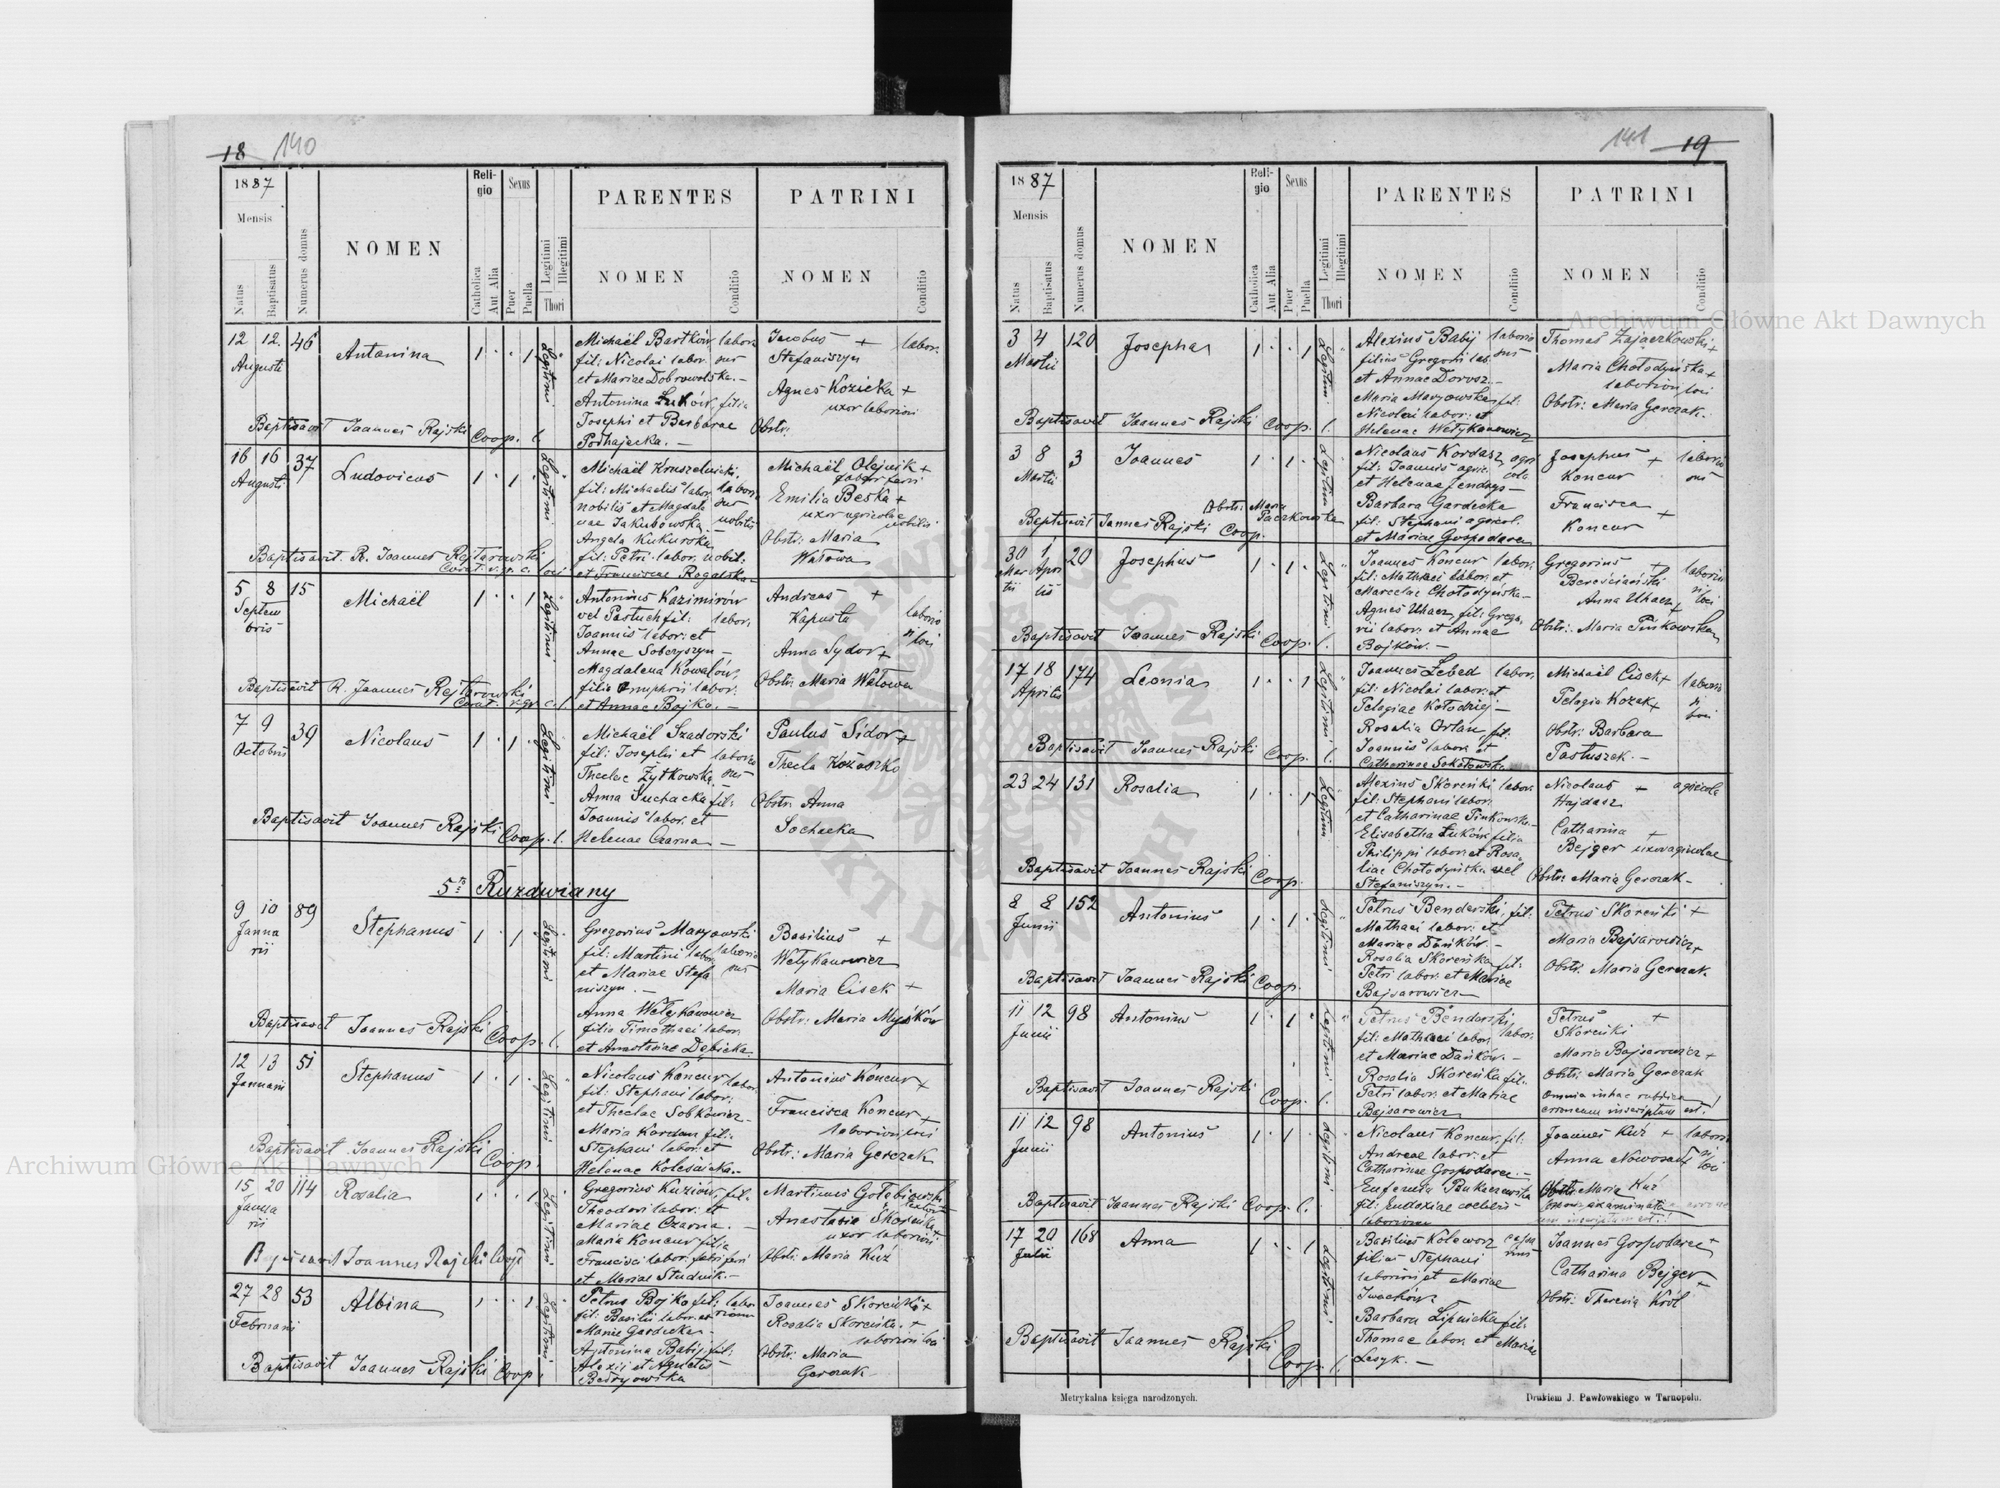 18 140
1887
Mensis
Natus
Baptisatus
Numerus domus
NOMEN
Religio
Catholica
Aut Alia
Sexus
Puer
Puella
Legitimi
Illegitimi
Thori
PARENTES
NOMEN
Conditio
PATRINI
NOMEN
Conditio
12 12 46
Augusti
Antonina
1 . . 1
Legitimi
Michaël Bartków labor.
fil: Nicolai labor.
et Mariae Dobrowolska. —
Antonina Łuków, filia
Josephi et Barbarae
Podhajecka. —
Jacobus + labor.
Stefaniszyn
Agnes Kozicka +
uxor laborioni
Obstr:
Baptisavit Joannes Rajski Coop. l.
16 16 37
Augusti
Ludovicus
1 . 1 .
Legitimi
Michaël Kruszelnicki,
fil: Michaelis labor.
nobilis et Magdale
nae Jakubowska —
Angela Kukurska
fil: Petri labor. nobil.
et Franciscae Rogalska
Michaël Olejnik +
faber ferri
Emilia Beska +
uxor agricolae
nobilis
Obstr: Maria
Watowa
Baptisavit R. Joannes Rejtarowski
5 8 15
Septem
bris
Michaël
1 . . 1
Legitimi
Antonius Kazimirów
vel Pastuch fil: labor.
Joannis labor: et
Annae Soberyszyn —
Magdalena Kowalów,
filia Onuphrii labor.
et Annae Bojka. —
Andreas +
Kapusta
Anna Sydor +
Obstr: Maria Watowa
Baptisavit R. Joannes Rejtarowski
7 9 39
Octobris
Nicolaus
1 . 1 .
Legitimi
Michaël Szadorski
fil: Josephi et
Theclae Żytkowska
Anna Suchacka fil:
Joannis labor. et
Helenae Czarna —
Paulus Sidor +
Thecla Kozaczko
Obstr: Anna
Sochacka
Baptisavit Joannes Rajski Coop. l.
5to Ruzdwiany
9 10 89
Janua
rii
Stephanus
1 . 1 .
Legitimi
Gregorius Maryowski
fil: Martini labor.
et Mariae Stefa
niszyn. —
Anna Wełykanowicz
filia Timothaei labor.
et Anastasiae Dębicka
Basilius +
Wetykanowicz
Maria Cisek +
Obstr: Maria Myśków
Baptisavit Joannes Rajski Coop. l.
12 13 51
Januarii
Stephanus
1 . 1 .
Legitimi
Nicolaus Koncur labor.
fil: Stephani labor.
et Theclae Sobkowicz
Maria Kordan fil:
Stephani labor. et
Helenae Kolesińska. —
Antonius Koncur +
Francisca Koncur +
Obstr: Maria Gerczak
Baptisavit Joannes Rajski Coop.
15 20 114
Janua
rii
Rosalia
1 . . 1
Legitimi
Gregorius Kuziów, fil.
Theodori labor. et
Mariae Czarna. —
Maria Koncur filia
Francisci labor. fabri ferri
et Mariae Studnik. —
Martinus Gołębiowski
Anastasia Skoreńka
uxor laborioni
Obstr: Maria Kuź
Baptisavit Joannes Rajski Coop
27 28 53
Februarii
Albina
1 . . 1
Legitimi
Petrus Bojko fil:
fil: Basilii labor. et
Mariae Gardecka
Antonina Babij fil:
Alexii et Agnetis
Bedryowska
Joannes Skoreński +
Rosalia Skoreńka. +
Obstr: Maria
Gerczak
Baptisavit Joannes Rajski Coop.
141 19
1887
Mensis
Natus
Baptisatus
Numerus domus
NOMEN
Religio
Catholica
Aut Alia
Sexus
Puer
Puella
Legitimi
Illegitimi
Thori
PARENTES
NOMEN
Conditio
PATRINI
NOMEN
Conditio
3 4 120
Martii
Josepha
1 . . 1
Legitimi
Alexius Babij
filius Gregorii lab.
et Annae Dorosz —
Maria Maryowska fil:
Nicolai labor. et
Helenae Wetykanowicz
Thomas Zajaczkowski +
Maria Chołodyńska +
Obstr: Maria Gerczak.
Baptisavit Joannes Rajski Coop. l.
3 8 3
Martii
Joannes
1 . 1 .
Legitimi
Nicolaus Kordasz agri
cola
fil: Joannis agric.
et Helenae Jendrys —
Barbara Gardecka
fil: Stephani agricol.
et Mariae Gospodarec
Josephus +
Koncur
Francisca +
Koncur
Obstr: Maria
Paczkowska
Baptisavit Joannes Rajski Coop.
30 1 20
Mar Apri
tii lis
Josephus
1 . 1 .
Legitimi
Joannes Koncur labor.
fil: Mathaei labor. et
Marcelae Chołodyńska —
Agnes Uhacz, fil: Grego
rii labor. et Annae
Bojków. —
Gregorius +
Bereściański
Anna Uhacz +
Obstr: Maria Pińkowska
Baptisavit Joannes Rajski Coop. l.
17 18 174
Aprilis
Leonia
1 . . 1
Legitimi
Joannes Lebed labor.
fil: Nicolai labor. et
Pelagiae Kołodziej —
Rosalia Orlan, fil:
Joannis labor. et
Catharinae Sokołowska
Michaël Cisek +
Pelagia Kozak +
Obstr: Barbara
Pastuszek. —
Baptisavit Joannes Rajski Coop. l.
23 24 131
Rosalia
1 . . 1
Legitimi
Alexius Skoreński labor.
fil: Stephani labor.
et Catharinae Pinkowska —
Elisabetha Łuków filia
Philippi labor. et Rosa
liae Chołodyńska vel
Stefaniszyn. —
Nicolaus + agricola
Hajdasz
Catharina +
Bejger uxor agricolae
Obstr: Maria Gerczak —
Baptisavit Joannes Rajski Coop.
8 8 152
Junii
Antonius
1 . 1 .
Legitimi
Petrus Benderski, fil:
Mathaei labor. et
Mariae Dańków. —
Rosalia Skoreńka fil:
Petri labor. et Mariae
Bajsarowicz
Petrus Skoreński +
Maria Bajsarowicz +
Obstr: Maria Gerczak
Baptisavit Joannes Rajski Coop.
11 12 98
Junii
Antonius
1 . 1 .
Legitimi
Petrus Benderski,
fil: Mathaei labor. labor.
et Mariae Dańków. —
Rosalia Skoreńka fil:
Petri labor. et Mariae
Bajsarowicz
Petrus +
Skoreński
Maria Bajsarowicz +
Obstr: Maria Gerczak
Omnia in hac rubrica
erroneum inscriptum est.!
Baptisavit Joannes Rajski Coop. l.
11 12 98
Junii
Antonius
1 . 1 .
Legitimi
Nicolaus Koncur, fil.
Andreae labor. et
Catharinae Gospodarec. —
Eufemia Bukaczewska
fil: Eudoxiae coelebis
laborioni
Joannes Kuź +
Anna Nowosad
Obstr: Maria Kuź
Baptisavit Joannes Rajski Coop. l.
17 20 168
Julii
Anna
1 . . 1
Legitimi
Basilius Kolewosz
filius Stephani
laborioni et Mariae
Iwachów
Barbara Lipnicka fil:
Thomae labor. et Mariae
Lesyk. —
Joannes Gospodarec +
Catharina Bejger +
Obstr: Theresia Krół
Baptisavit Joannes Rajski Coop. l.
Metrykalna księga narodzonych.
Drukiem J. Pawłowskiego w Tarnopolu.
Archiwum Główne Akt Dawnych
Archiwum Główne Akt Dawnych